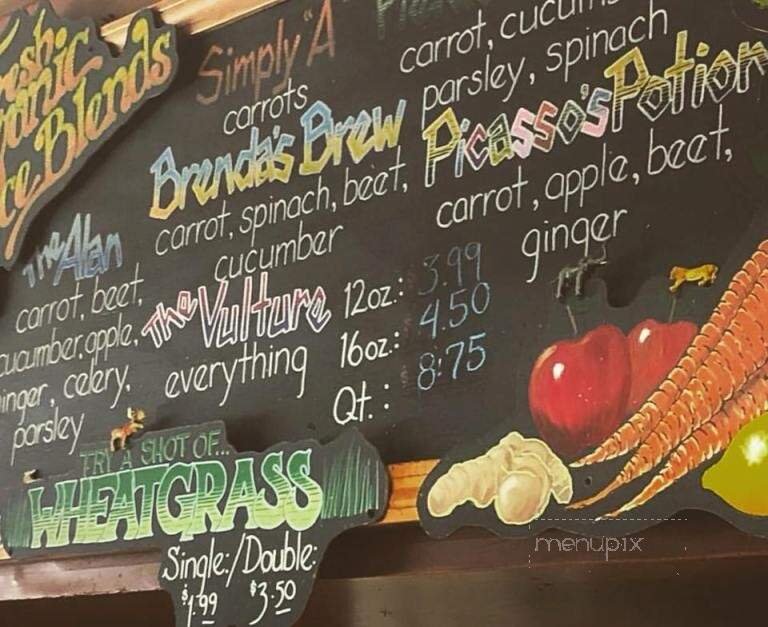 Organic
Blends
Simply "A"
carrots
carrot,
parsley, spinach
Brenda's Brew
carrot, spinach, beet,
cucumber
Picasso's Potion
carrot, apple, beet,
ginger
The Alan
carrot, beet,
cucumber, apple,
ginger, celery,
parsley
The Vulture
everything
12oz.: 3.99
16oz.: 4.50
Qt.: 8.75
TRY A SHOT OF...
WHEATGRASS
Single:/Double:
$1.99 $3.50
menupix